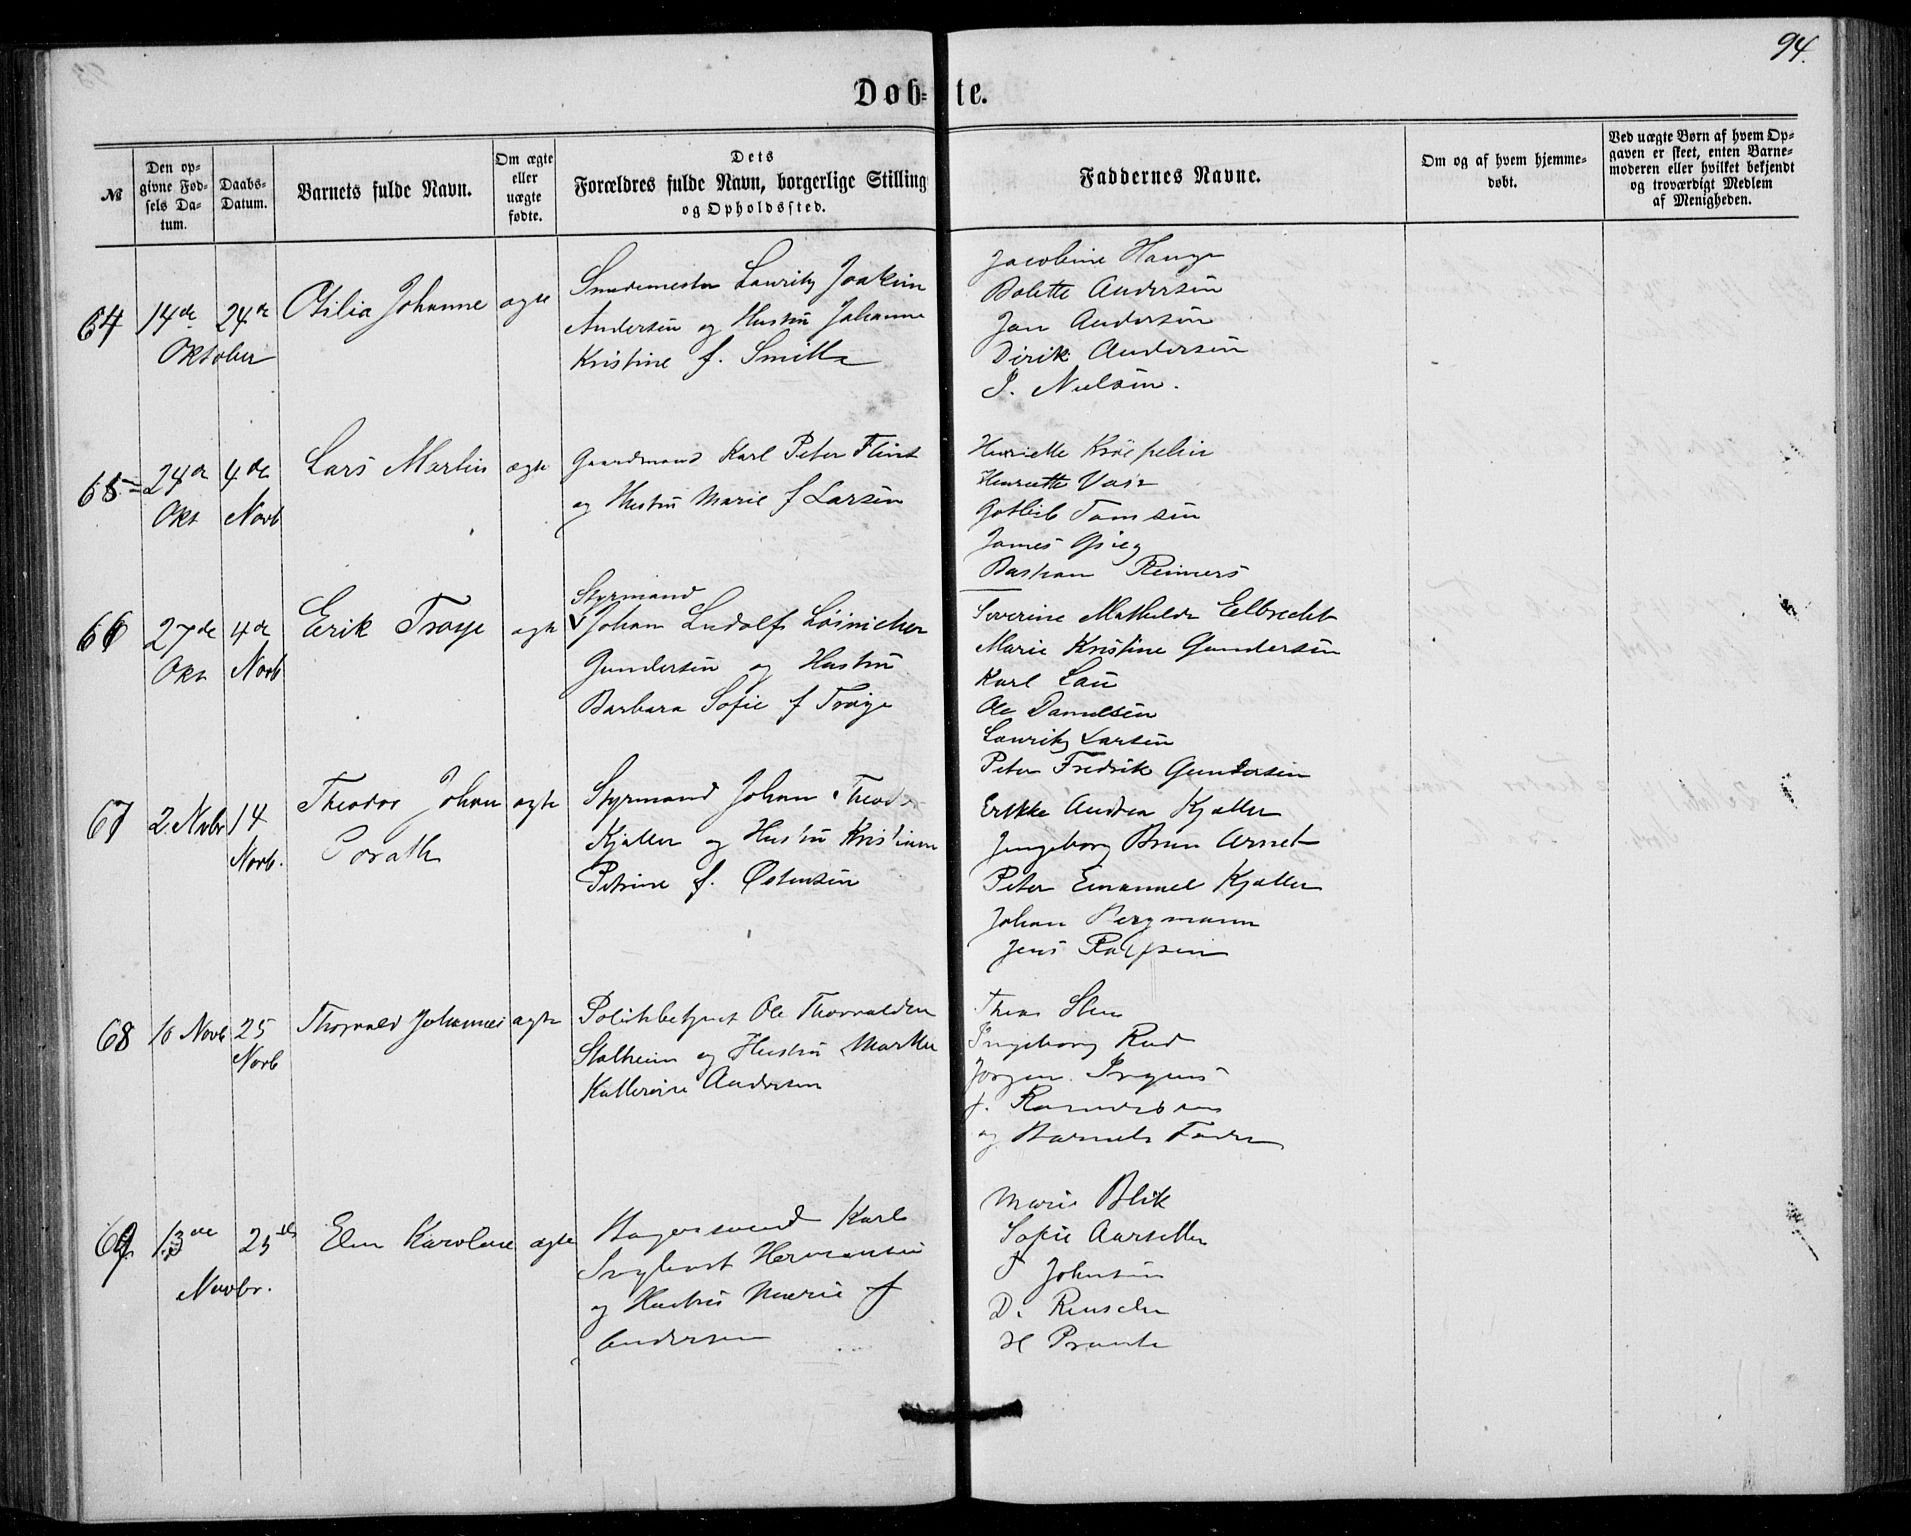 94.
Døb-te.
№
Den op-
givne Fød-
sels Da-
tum.
Daabs-
Datum.
Barnets fulde Navn.
Om ægte
eller
uægte
fødte.
Dets
Forældres fulde Navn, borgerlige Stilling
og Opholdssted.
Faddernes Navne.
Om og af hvem hjemme-
døbt.
Ved uægte Børn af hvem Op-
gaven er skeet, enten Barne-
moderen eller hvilket bekjendt
og troværdigt Medlem
af Menigheden.
64 14de 24de
Oktober
Otilia Johanne
ægte
Smedemester Lauritz Joakim
Andersen og Hustru Johanne
Kristine f. Smith
Jacobine
Bolette Andersen
Jan Andersen
Didrik Andersen
Nielsen.
65 24de 4de
Okt Novb
Lars Martin
ægte
Gaardmand Karl Peter Flint
og Hustru Marie f Larsen
Henriette Krøepelin
Henriette
Gotlieb Tomsen
James Grieg
Bastian Reimers
66 27de 4de
Okt Novb
Erik Troye
ægte
Styrmand
Johan Ludolf
Gundersen og Hustru
Barbara Sofie f Troye
Severine Mathilde Elbrecht
Marie Kristine Gundersen
Karl Lau
Ole Danielsen
Lauritz Larsen
Peter Fredrik Gundersen
67 2. Novbr 14
Novb.
Theodor Johan
Porath
ægte
Styrmand Johan Theodor
Kjøller og Hustru Kristiane
Petrine f. Østensen
Erikke Andrea Kjøller
Ingeborg Brun Arnet
Peter Emanuel Kjøller
Johan Bergmann
Jens
68 10 Novb 25
Novb
Thorvald Johannes
ægte
Politibetjent Ole Thorvaldsen
Stalheim og Hustru Marthe
Katherine Andersen
Thea Sten
Ingeborg
Jørgen Irgens
og Barnets Fader
69 13de 25de
Novbr.
Karoline
ægte
Bagersvend Karl
Ingbart Hermansen
og Hustru Marie f
Andersen
Marie Blik
Sofie
Johnsen
D. Renscher